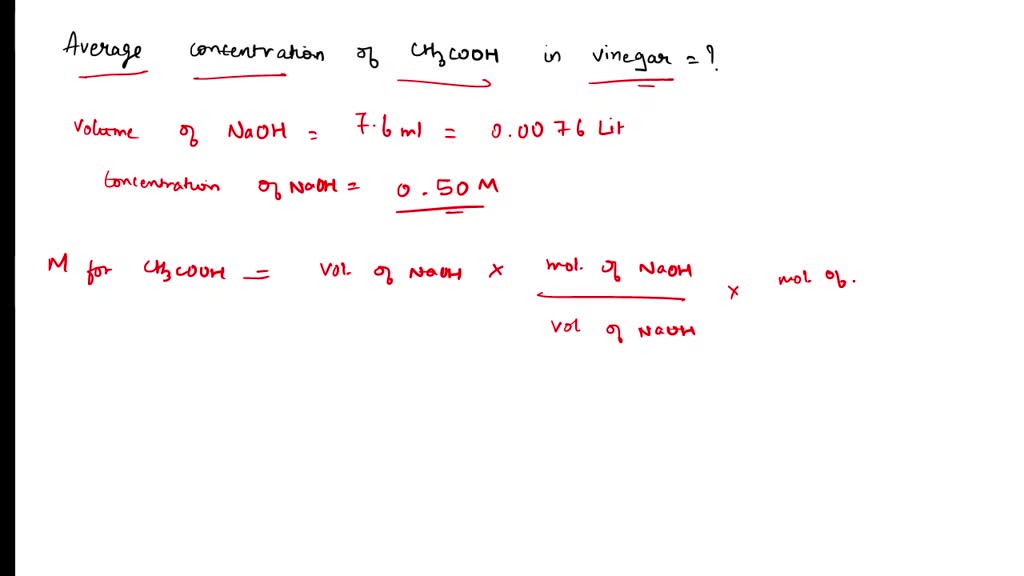 Average concentration of CH3COOH in vinegar = ?
Volume of NaOH = 7.6 ml = 0.0076 Lit
Concentration of NaOH = 0.50 M
M for CH3COOH = vol. of NaOH × mol. of NaOH / vol of NaOH × mol of.